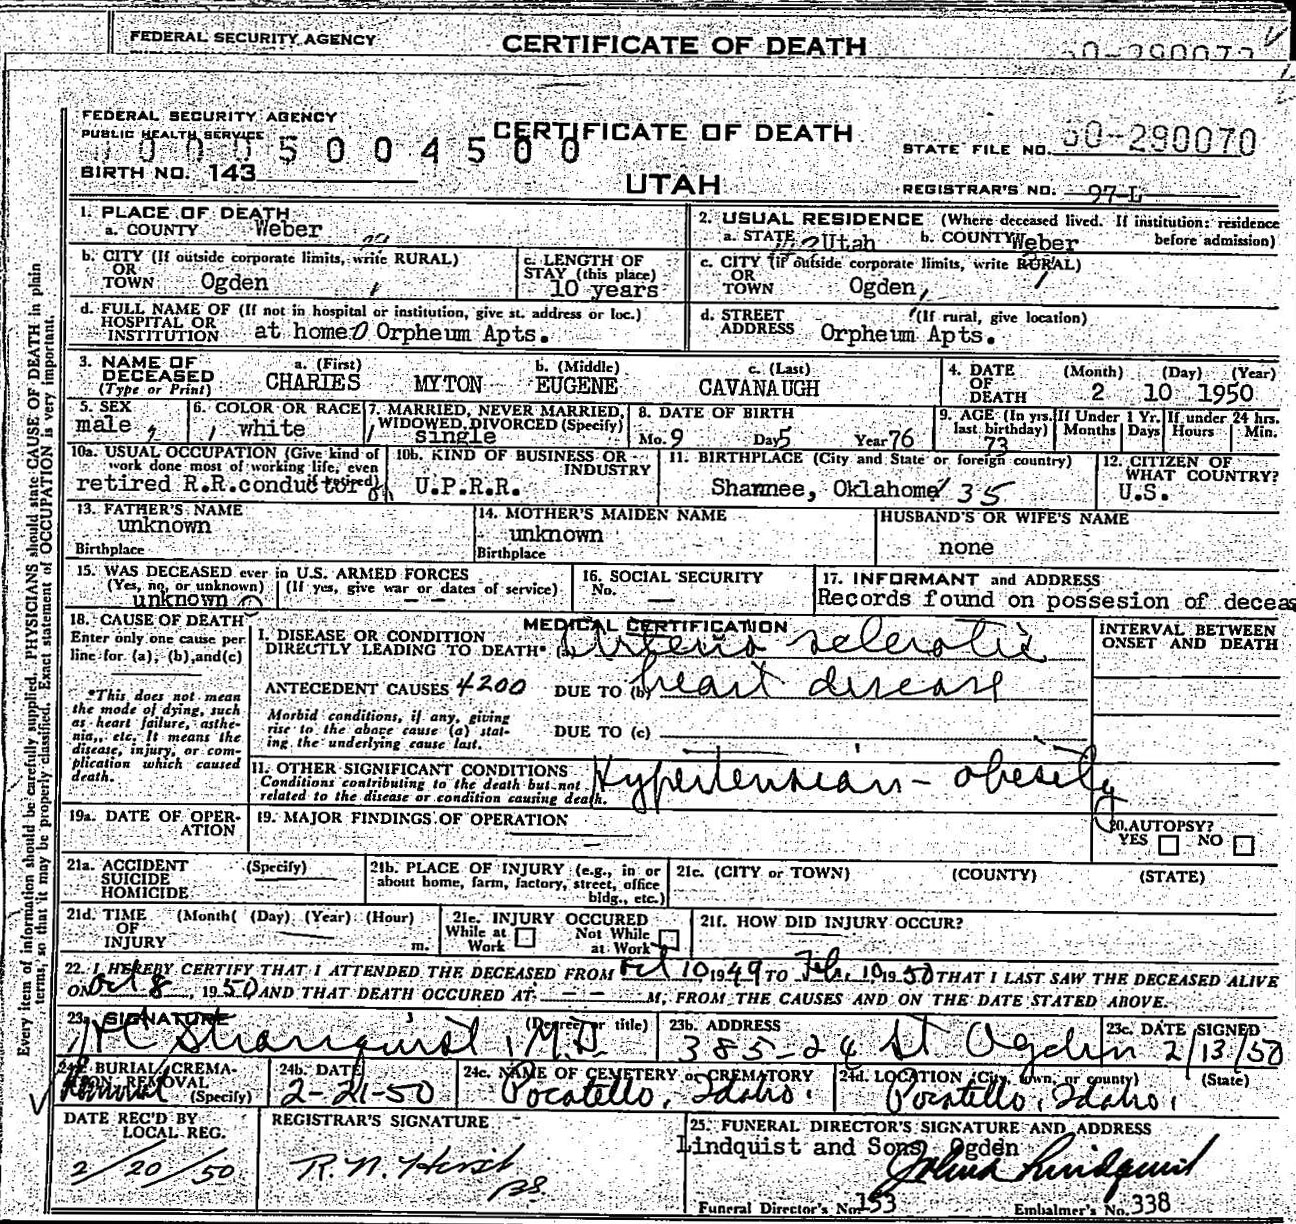 FEDERAL SECURITY AGENCY CERTIFICATE OF DEATH
FEDERAL SECURITY AGENCY
PUBLIC HEALTH SERVICE
CERTIFICATE OF DEATH
STATE FILE NO. 50-290070
BIRTH NO. 143
UTAH
REGISTRAR'S NO. 97-L
Every item of information should be carefully supplied. PHYSICIANS should state CAUSE OF DEATH in plain
terms, so that it may be properly classified. Exact statement of OCCUPATION is very important.
1. PLACE OF DEATH
a. COUNTY Weber
2. USUAL RESIDENCE (Where deceased lived. If institution: residence
before admission)
a. STATE Utah b. COUNTY Weber
b. CITY (If outside corporate limits, write RURAL)
OR
TOWN Ogden
c. LENGTH OF
STAY (this place)
10 years
c. CITY (if outside corporate limits, write RURAL)
OR
TOWN Ogden,
d. FULL NAME OF (If not in hospital or institution, give st. address or loc.)
HOSPITAL OR
INSTITUTION at home Orpheum Apts.
d. STREET (If rural, give location)
ADDRESS Orpheum Apts.
3. NAME OF
DECEASED
(Type or Print)
a. (First) b. (Middle) c. (Last)
CHARIES MYTON EUGENE CAVANAUGH
4. DATE
OF
DEATH
(Month) (Day) (Year)
2 10 1950
5. SEX
male
6. COLOR OR RACE
white
7. MARRIED, NEVER MARRIED,
WIDOWED, DIVORCED (Specify)
single
8. DATE OF BIRTH
Mo. 9 Day 5 Year 76
9. AGE (In yrs.
last birthday)
73
If Under 1 Yr.
Months Days
If under 24 hrs.
Hours Min.
10a. USUAL OCCUPATION (Give kind of
work done most of working life, even
if retired)
retired R.R.conductor
10b. KIND OF BUSINESS OR
INDUSTRY
U.P.R.R.
11. BIRTHPLACE (City and State or foreign country)
Shannee, Oklahome 35
12. CITIZEN OF
WHAT COUNTRY?
U.S.
13. FATHER'S NAME
unknown
Birthplace
14. MOTHER'S MAIDEN NAME
unknown
Birthplace
HUSBAND'S OR WIFE'S NAME
none
15. WAS DECEASED ever in U.S. ARMED FORCES
(Yes, no, or unknown) (If yes, give war or dates of service)
unknown - -
16. SOCIAL SECURITY
No. —
17. INFORMANT and ADDRESS
Records found on possesion of deceas
18. CAUSE OF DEATH
Enter only one cause per
line for (a), (b), and (c)
*This does not mean
the mode of dying, such
as heart failure, asthe-
nia, etc. It means the
disease, injury, or com-
plication which caused
death.
MEDICAL CERTIFICATION
I. DISEASE OR CONDITION
DIRECTLY LEADING TO DEATH* (a) Arterio sclerotic
ANTECEDENT CAUSES 4200 DUE TO (b) heart disease
Morbid conditions, if any, giving
rise to the above cause (a) stat-
ing the underlying cause last.
DUE TO (c)
INTERVAL BETWEEN
ONSET AND DEATH
11. OTHER SIGNIFICANT CONDITIONS
Conditions contributing to the death but not
related to the disease or condition causing death.
Hypertension - obesity
19a. DATE OF OPER-
ATION
19. MAJOR FINDINGS OF OPERATION
20. AUTOPSY?
YES NO
21a. ACCIDENT
SUICIDE
HOMICIDE
(Specify)
21b. PLACE OF INJURY (e.g., in or
about home, farm, factory, street, office
bldg., etc.)
21c. (CITY or TOWN) (COUNTY) (STATE)
21d. TIME
OF
INJURY
(Month( (Day) (Year) (Hour)
m.
21e. INJURY OCCURED
While at
Work
Not While
at Work
21f. HOW DID INJURY OCCUR?
22. I HEREBY CERTIFY THAT I ATTENDED THE DECEASED FROM Oct 10, 1949 TO Feb. 10, 1950 THAT I LAST SAW THE DECEASED ALIVE
ON Oct 8, 1950 AND THAT DEATH OCCURED AT - - M, FROM THE CAUSES AND ON THE DATE STATED ABOVE.
23. SIGNATURE (Degree or title)
Stranquist, M.D.
23b. ADDRESS
385-24 St Ogden
23c. DATE SIGNED
2/13/50
24a. BURIAL, CREMA-
TION, REMOVAL
(Specify)
Removal
24b. DATE
2-21-50
24c. NAME OF CEMETERY or CREMATORY
Pocatello, Idaho.
24d. LOCATION (City, town, or county) (State)
Pocatello, Idaho,
DATE REC'D BY
LOCAL REG.
2/20/50
REGISTRAR'S SIGNATURE
25. FUNERAL DIRECTOR'S SIGNATURE AND ADDRESS
Lindquist and Sons Ogden
Lindquist
Funeral Director's No. 153 Embalmer's No. 338